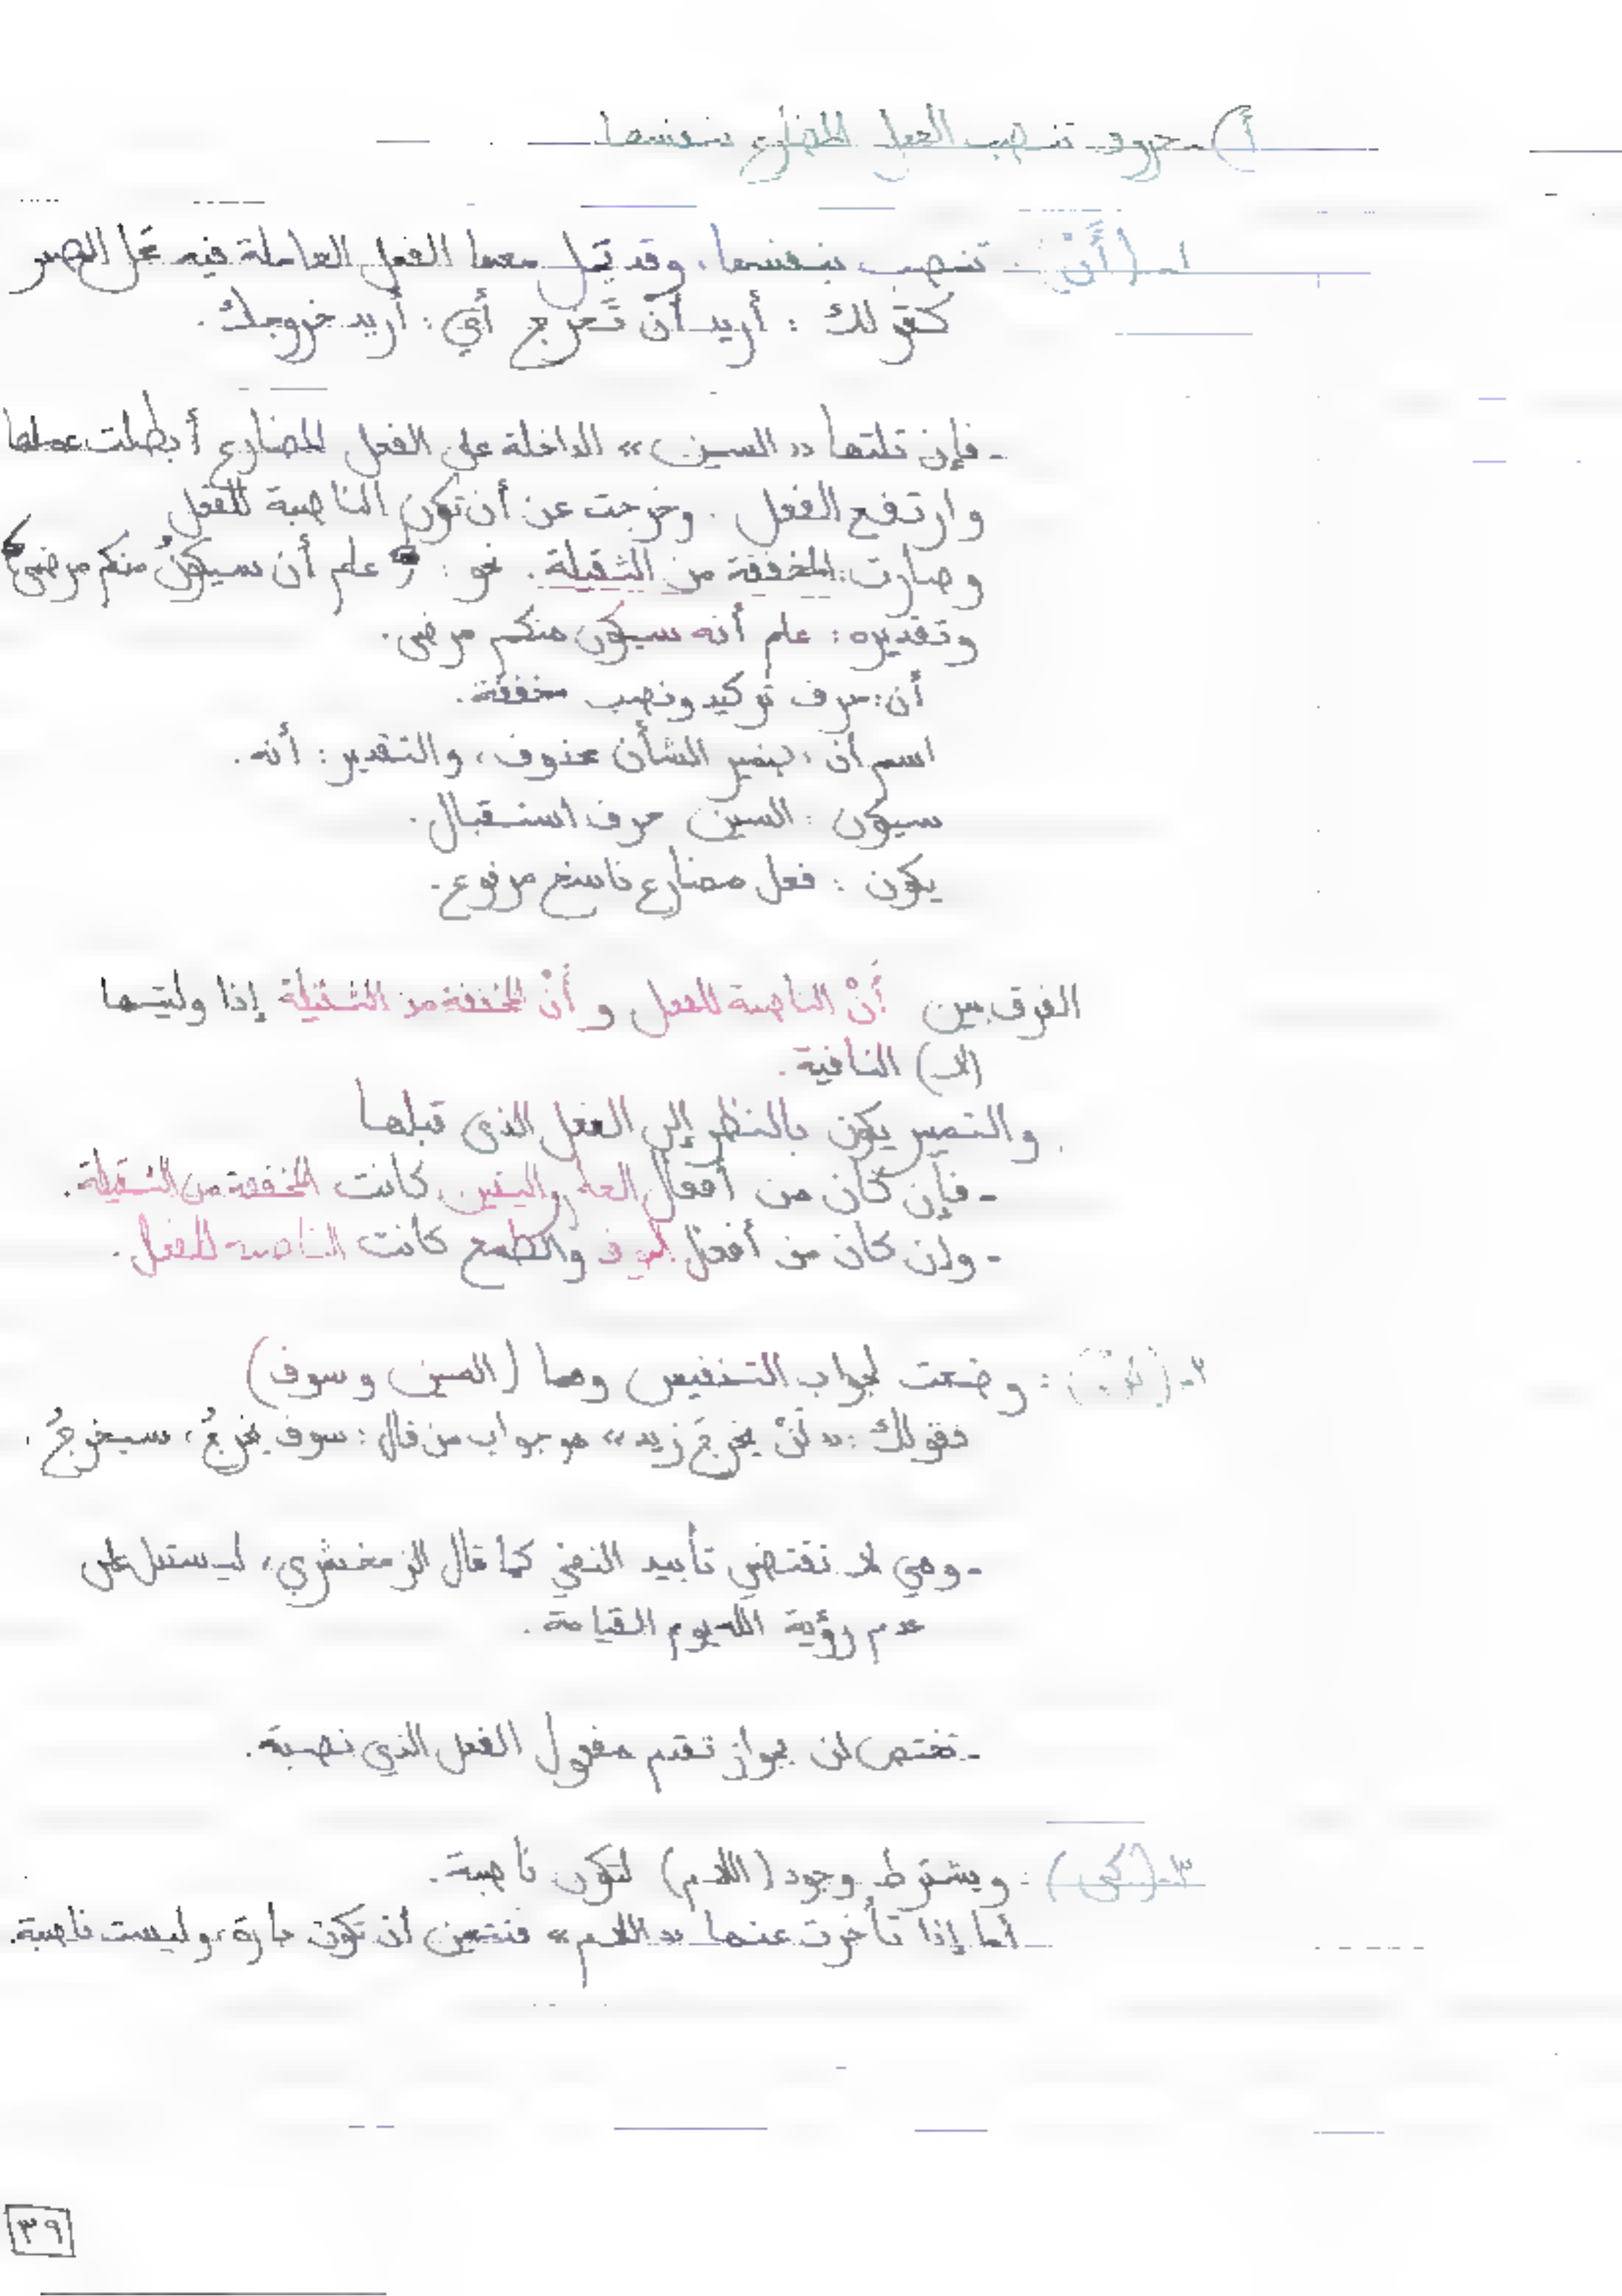 أ)- حروف تنصب الفعل المضارع بنفسها
١- (أَنْ): تنصب بنفسها، وقد تحل معها الفعل العاملة فيه محل المصدر
كقولك : أريد أنْ تَخرج أي: أريد خروجك.
- فإن تلتها «السين» الداخلة على الفعل المضارع أبطلت عملها
وارتفع الفعل . وخرجت عن أن تكون الناصبة للفعل
وصارت: المخففة من الثقيلة. نحو: ﴿علم أن سيكونُ منكم مرضى﴾
وتقديره: علم أنه سيكون منكم مرضى.
أن: حرف توكيد ونصب مخففة.
اسم أن : ضمير الشأن محذوف، والتقدير: أنه.
سيكون : السين حرف استقبال.
يكون : فعل مضارع ناسخ مرفوع.
الفرق بين أَنْ الناصبة للفعل و أنْ المخففة من الثقيلة إذا وليتها
(لا) النافية.
والتمييز يكون بالنظر إلى الفعل الذي قبلها
- فإن كان من أفعال العلم واليقين كانت المخففة من الثقيلة.
- وإن كان من أفعال الخوف والطمع كانت الناصبة للفعل.
٢- (لَنْ) : وضعت لجواب التنفيس وهما (السين وسوف)
فقولك : «لَنْ يخرجَ زيد» هو جواب من قال: سوف يخرجُ، سيخرجُ.
- وهي لا تقتضي تأبيد النفي كما قال الزمخشري، ليستدل على
عدم رؤية الله يوم القيامة.
- تختص لن بجواز تقدم مفعول الفعل الذي نصبته.
٣- (كي) : ويشترط وجود (اللام) لتكون ناصبة.
أما إذا تأخرت عنها «اللام» فتتعين أن تكون جارة، وليست ناصبة.
٣٩